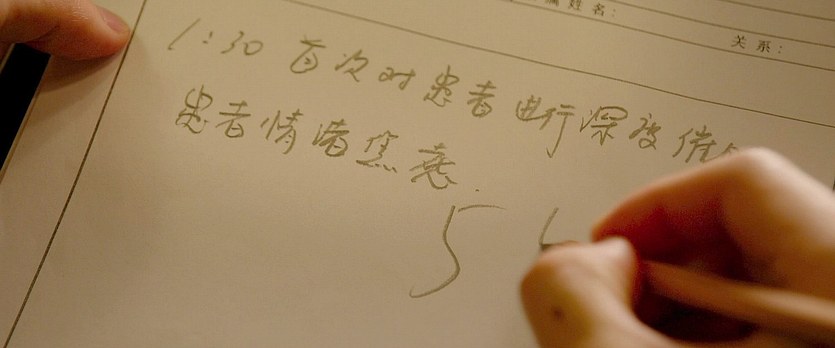 属姓名：
关系：
1:30 首次对患者进行深被催
患者情绪焦虑.
5